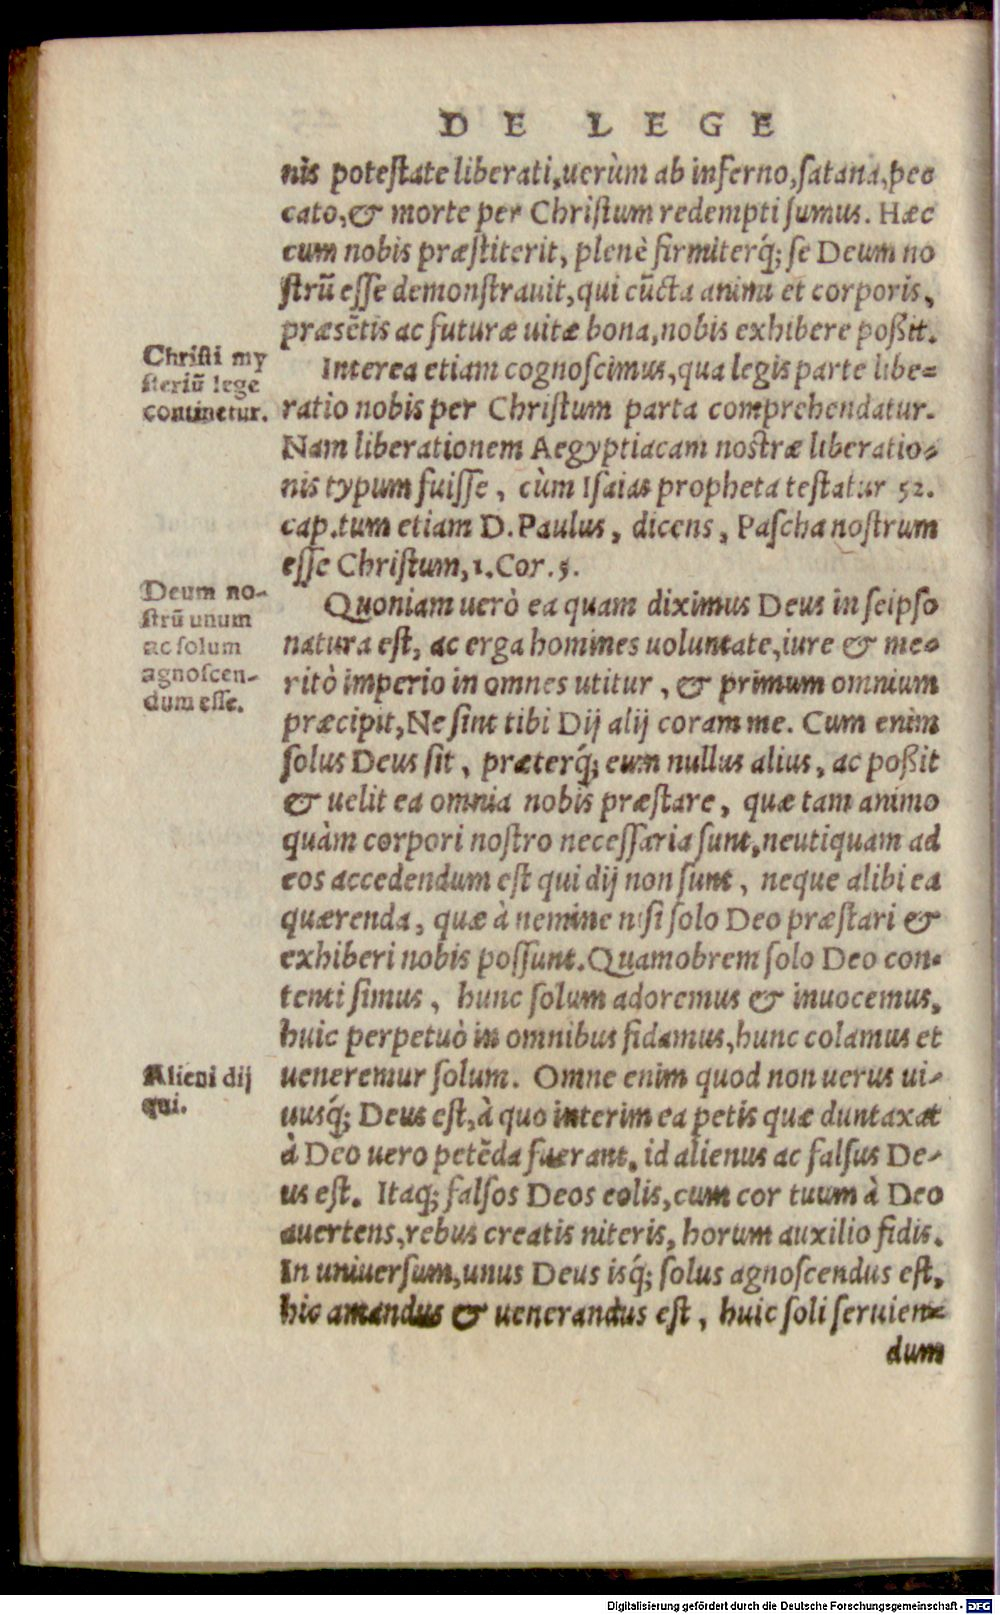 DE LEGE
nis potestate liberati, uerùm ab inferno, satana, pec
cato, & morte per Christum redempti sumus. Hæc
cum nobis præstiterit, plenè firmiterq́; se Deum no
strũ esse demonstrauit, qui cũcta animi et corporis,
præsẽtis ac futuræ uitæ bona, nobis exhibere poßit.
Christi my
steriũ lege
continetur.
Interea etiam cognoscimus, qua legis parte libe=
ratio nobis per Christum parta comprehendatur.
Nam liberationem Aegyptiacam nostræ liberatio-
nis typum fuisse, cùm Isaias propheta testatur 52.
cap. tum etiam D. Paulus, dicens, Pascha nostrum
esse Christum, 1. Cor. 5.
Deum no-
strũ unum
ac solum
agnoscen-
dum esse.
Quoniam uerò ea quam diximus Deus in seipso
natura est, ac erga homines uoluntate, iure & me-
ritò imperio in omnes utitur, & primum omnium
præcipit, Ne sint tibi Dij alij coram me. Cum enim
solus Deus sit, præterq́; eum nullus alius, ac poßit
& uelit ea omnia nobis præstare, quæ tam animo
quàm corpori nostro necessaria sunt, neutiquam ad
eos accedendum est qui dij non sunt, neque alibi ea
quærenda, quæ à nemine nisi solo Deo præstari &
exhiberi nobis possunt. Quamobrem solo Deo con-
tenti simus, hunc solum adoremus & inuocemus,
huic perpetuò in omnibus fidamus, hunc colamus et
Alieni dij
qui.
ueneremur solum. Omne enim quod non uerus ui-
uusq́; Deus est, à quo interim ea petis quæ duntaxat
à Deo uero petẽda fuerant, id alienus ac falsus De-
us est. Itaq; falsos Deos colis, cum cor tuum à Deo
auertens, rebus creatis niteris, horum auxilio fidis.
In uniuersum, unus Deus isq́; solus agnoscendus est,
hic amandus & uenerandus est, huic soli seruien=
dum
Digitalisierung gefördert durch die Deutsche Forschungsgemeinschaft - DFG